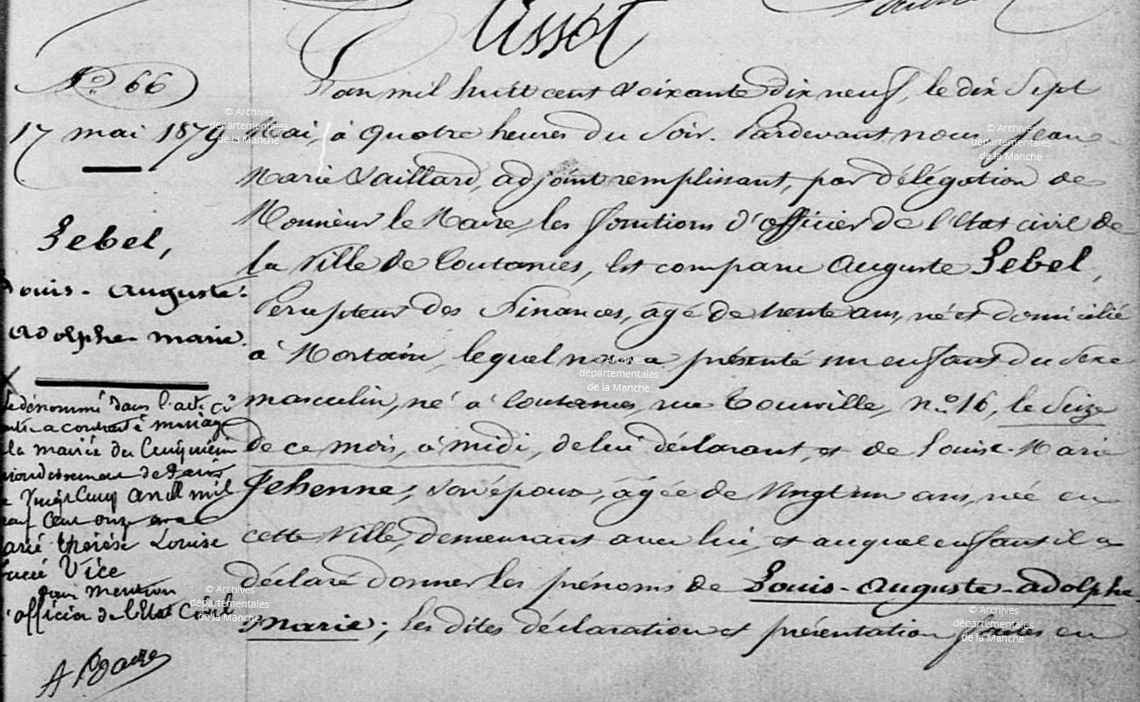 Tissot
N° 66
17 mai 1879
Lebel,
Louis-Auguste-
Adolphe-marie.
Le dénommé dans l'acte ci
contre a contracté mariage
à la mairie du Cinquième
arrondissement de Paris
le vingt cinq avril mil
neuf cent onze avec
Marie Thérèse Louise
Lucie Vice
pour mention
l'officier de l'Etat Civil
L'an mil huit cent soixante dix neuf, le dix Sept
Mai, à quatre heures du soir. Pardevant nous Jean
Marie Vaillard, adjoint remplissant, par délégation de
Monsieur le Maire, les fonctions d'officier de l'Etat civil de
la Ville de Coutances, Est comparu Auguste Lebel,
Percepteur des Finances, âgé de trente ans, né et domicilié
à Mortain, lequel nous a présenté un enfant du sexe
masculin, né à Coutances, rue Tourville, n° 16, le Seize
de ce mois, à midi, de lui déclarant, et de Louise-Marie
Jehenne, son épouse, âgée de vingt un ans, née en
cette Ville, demeurant avec lui, et auquel enfant il a
déclaré donner les prénoms de Louis-Auguste-Adolphe
Marie; Les dites déclaration et présentation faites en
© Archives
départementales
de la Manche
© Archives
départementales
de la Manche
© Archives
départementales
de la Manche
© Archives
départementales
de la Manche
© Archives
départementales
de la Manche